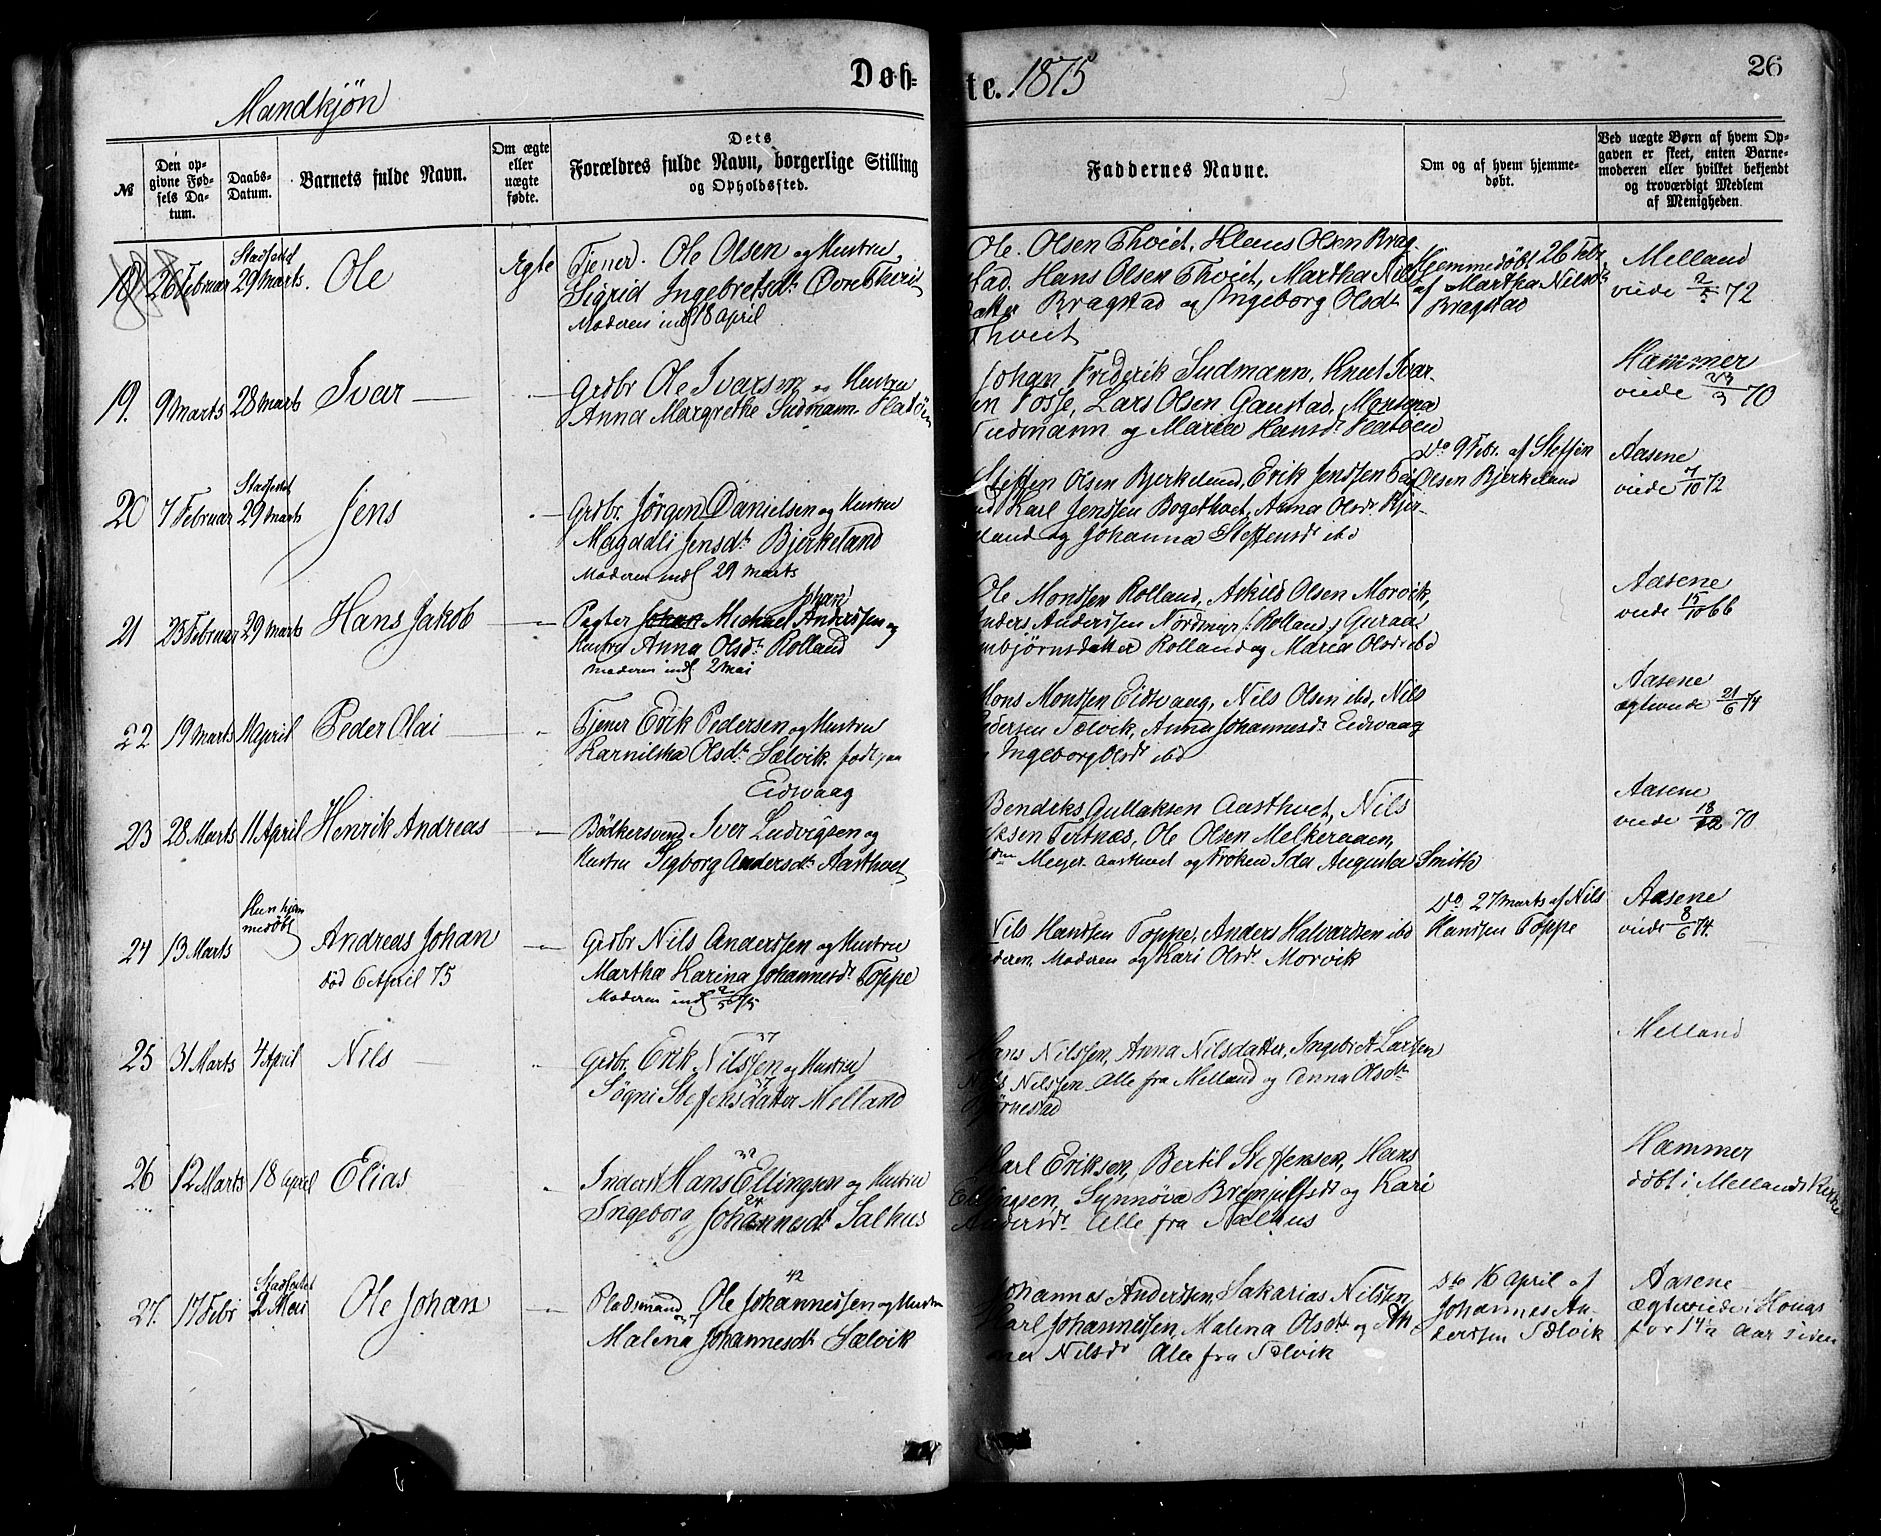 Mandkjön
Døbte. 1875
26
№
Den opgivne Fødsels Datum.
Daabs-Datum.
Barnets fulde Navn.
Om ægte eller uægte fødte.
Dets Forældres fulde Navn, borgerlige Stilling og Opholdssted.
Faddernes Navne.
Om og af hvem hjemmedøbt.
Ved uægte Børn af hvem Opgaven er skeet, enten Barnemoderen eller hvilket bekjendt og troværdigt Medlem af Menigheden.
18 26 Februar Stadfestet 29 Marts. Ole Ægte
Tjener. Ole Olsen og Hustru
Sigrid Ingebretsdt Övre Thveit
Moderen indl 18 April
Ole Olsen Thveit, Klaus Olsen Brag-
stad. Hans Olsen Thveit, Martha Nils
datter Bragstad og Ingeborg Olsdt
Thveit
Hjemmedöbt 26 Febr
af Martha Nilsdt
Bragstad
Melland
viede 2/5 72
19. 9 Marts 28 Marts Ivar — "—
Grdbr Ole Ivarsen og Hustru
Anna Margrethe Sudmann Flatöen
Johan Frederik Sudmann, Knut Ivar-
sen Fosse, Lars Olsen Gaustad, Monsina
Sudmann og Marie Hansdt Flatöen
Hammer
viede 23/3 70
20 7 Februar Stadfestet 29 Marts Jens "—
Grdbr. Jörgen Danielsen og Hustru
Magdali Jensdt Bjerkeland
Moderen indl 29 Marts
Steffen Olsen Bjerkeland, Erik Jenssen
Karl Jenssen Bogethvet, Anna Olsdt Bjer-
keland og Johanna Steffensdt ibd
Do 9 Febr. af Steffen
Olsen Bjerkeland
Aasene
viede 7/10 72
21 25 Februar 29 Marts Hans Jakob — "—
Johan
Pagter Johan Michael Anderssen og
Hustru Anna Olsdt Rolland
Moderen indl 2 Mai
Ole Monssen Rolland, Askild Olsen Morvik,
Anders Anderssen Nordmyr (Rolland) Guraa
mbjörnsdatter Rolland og Maria Olsdt ibd
Aasene
viede 15/10 66
22 19 Marts 11 April Peder Olai — "
Tjener Erik Pedersen og Hustru
Karnilska Olsdt Sælvik födt paa
Eidsvaag
Mons Monssen Eidsvaag, Nils Olsen ibd, Nils
Pedersen Sælvik, Anna Johannesdt Eidsvaag
Ingeborg Olsdt ibd
Aasene
ægteviede 21/6 74
23 28 Marts 11 April Henrik Andreas — "—
Bödkersvend Iver Ludvigsen og
Hustru Sigborg Andersdt Aasthvet
Bendiks Gullaksen Aasthvet, Nils
Tertnæs, Ole Olsen Melkeraaen,
Meyer Aasthvet og Fröken Ida Augusta Smith
Aasene
viede 18/12 70
24 13 Marts Kun hjemmedöbt Andreas Johan "—
död 6 April 75
Grdbr Nils Anderssen og Hustru
Martha Karina Johannesdt Toppe
Moderen indl 2/5 75
Nils Hanssen Toppe, Anders Halvardsen ibd
Faderen, Moderen og Kari Olsdt Morvik
Do 27 Marts af Nils
Hanssen Toppe
Aasene
viede 8/6 74.
25 31 Marts 4 April Nils — "
37
Grdbr. Erik Nilssen og Hustru
37
Sögni Steffensdatter Melland
Hans Nilssen, Anna Nilsdatter, Ingebrit Larsen
Nils Nilssen Alle fra Melland og Anna Olsdt
Björnestad
Melland
26 12 Marts 18 April Elias "
Inderst Hans Ellingsen og Hustru
24
Ingeborg Johannesdt Salhus
Karl Eriksen, Bertil Steffensen, Hans
Ellingsen, Synnöva Brynjulfsdt og Kari
Andersdt Alle fra Salhus
Hammer
döbt i Mellands Kirke
27. 17 Febr Stadfestet 2 Mai Ole Johan "—
42
Pladsmand Ole Johannessen og Hustru
Malena Johannesdt Sælvik
Johannes Anderssen, Sakarias Nilssen,
Karl Johannessen, Malena Olsdt og An
na Nilsdt Alle fra Sælvik
Do 16 April af
Johannes An-
derssen Sælvik
Aasene
ægteviede i Houg
for 14 1/2 Aar siden